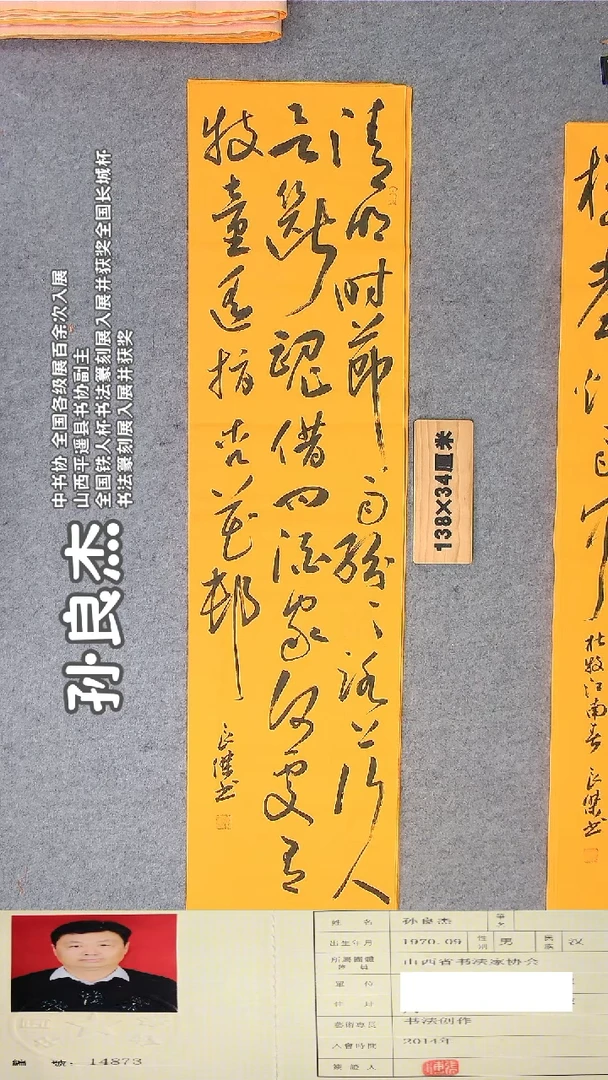 孙良杰
中书协 全国各级展百余次入展
山西平遥县书协副主
全国铁人杯书法篆刻展入展并获奖全国长城杯
书法篆刻展入展并获奖
清明时节雨纷々路上行人
欲断魂借问酒家何处有
牧童遥指杏花村
良傑书
138×34厘米
楼臺烟雨中
杜牧江南春 良傑书
姓 名 孙良杰
出生年月 1970.09 性別 男 民族 汉
山西省书法家协会
單 位
藝術專長 书法创作
入會時間 2014年
14873